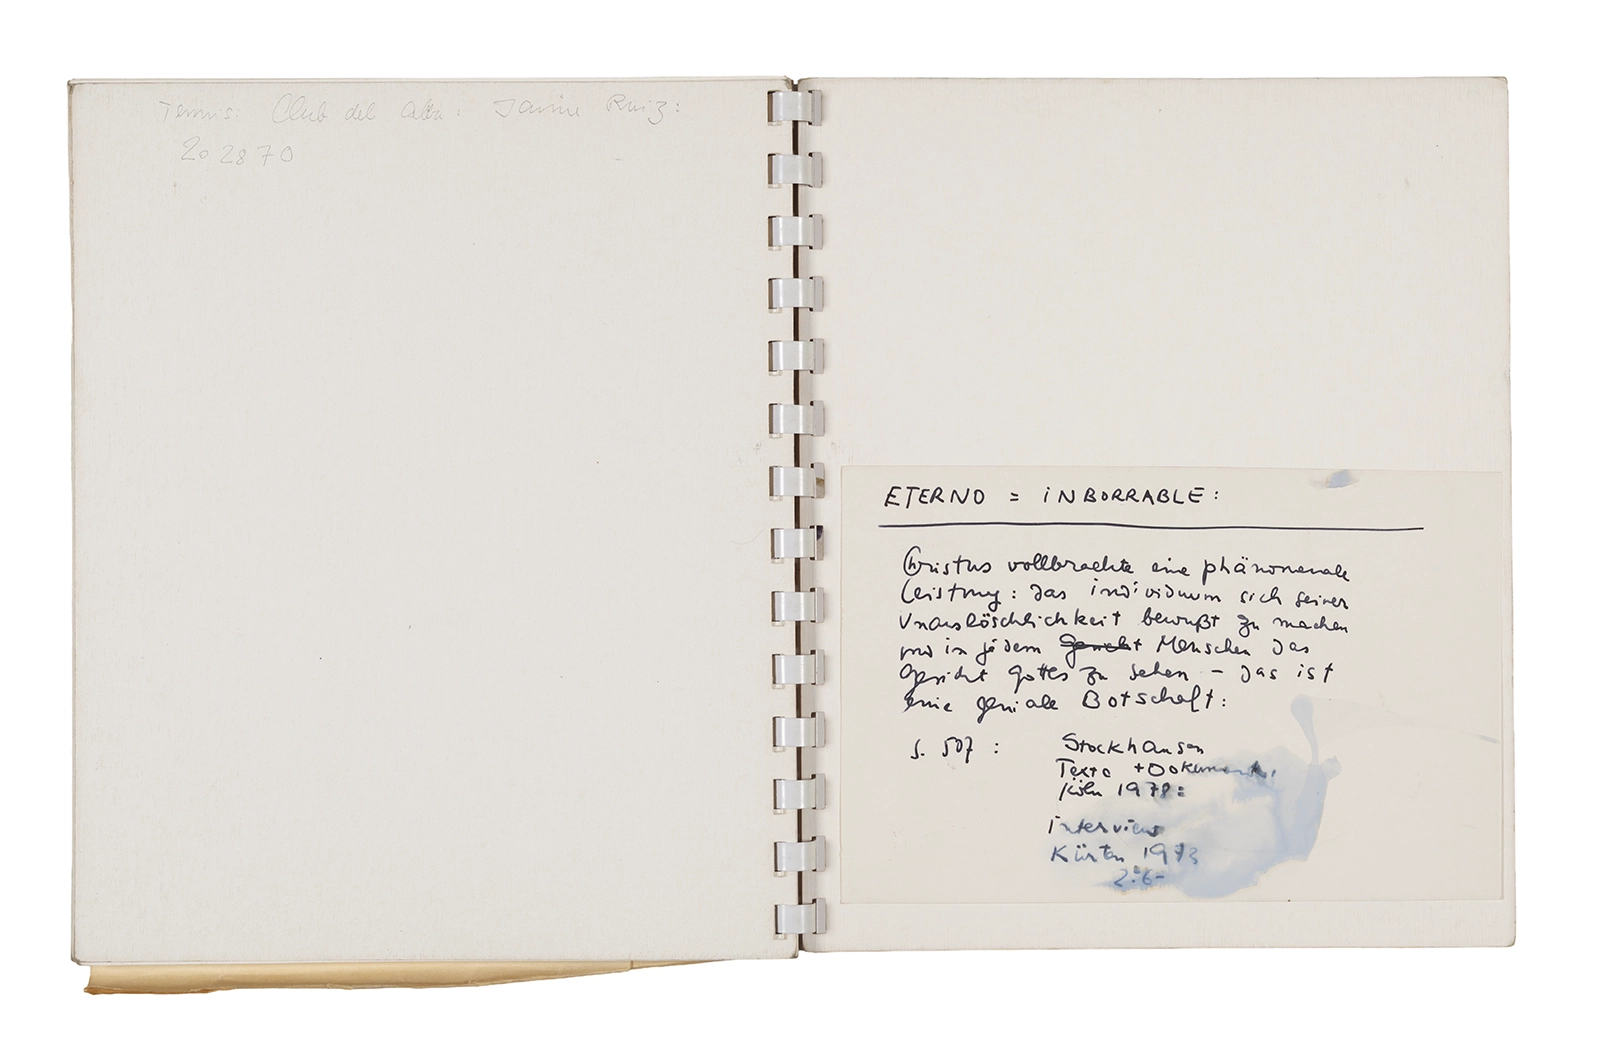 Tennis: Club del
Ruiz:
20 28 70
ETERNO = iNBORRABLE:
Christus vollbrachte eine phänomenale
Leistung: das individuum sich seiner
Unauslöschlichkeit bewußt zu machen
und in jedem Menschen das
Gesicht Gottes zu sehen – das ist
eine geniale Botschaft:
S. 507 : Stockhausen
Texte + Dokumente
Köln 1978:
interview
Kürten 1973
2.6-